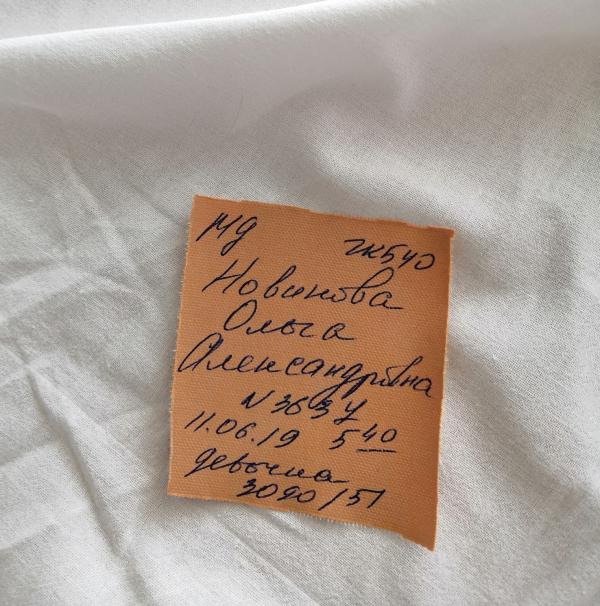 МД ГКБ40
Новикова
Ольга
Александровна
N 3634
11.06.19 5 40
девочка
3020/51